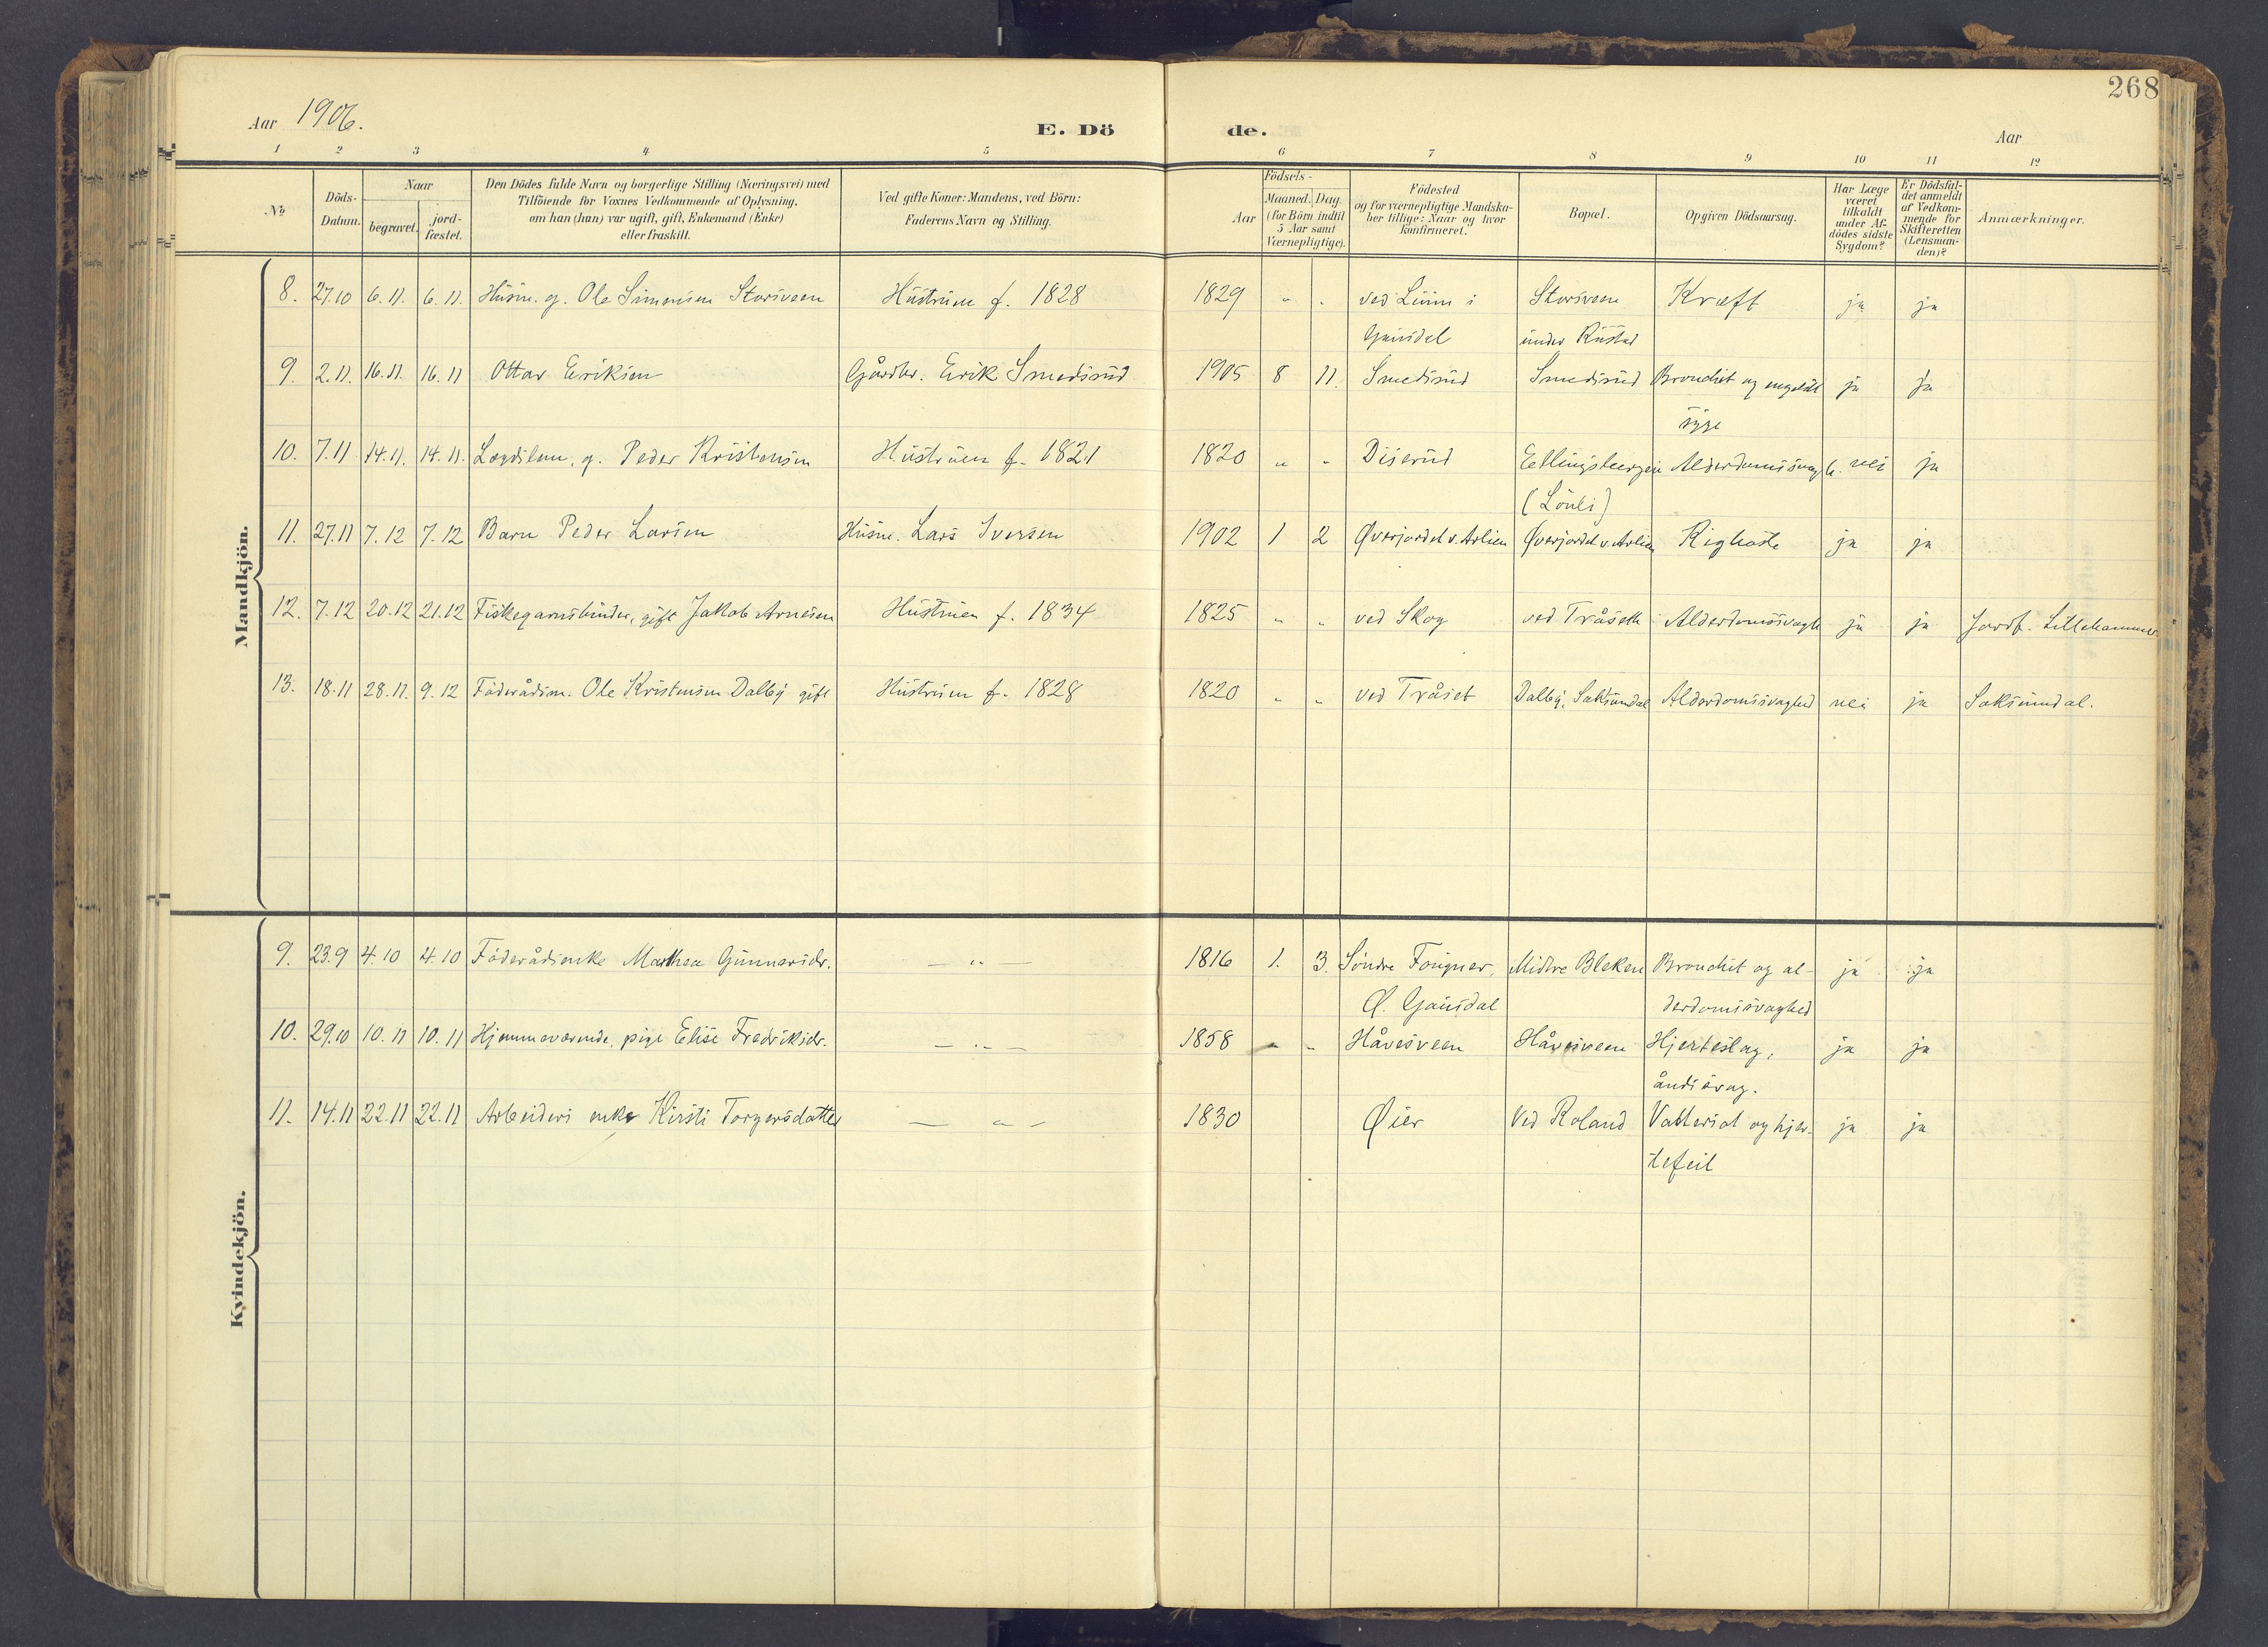 268
Aar 1906.
E. Dö de.
Aar
1 2 3 4 5 6 7 8 9 10 11 12
№
Döds-Datum.
Naar
begravet.
jord-fæstet.
Den Dödes fulde Navn og borgerlige Stilling (Næringsvei) med
Tilföiende for Voxnes Vedkommende af Oplysning,
om han (hun) var ugift, gift, Enkemand (Enke)
eller fraskilt.
Ved gifte Koner: Mandens, ved Börn:
Faderens Navn og Stilling.
Födsels-
Aar
Maaned. Dag.
(for Börn indtil
5 Aar samt
Værnepligtige).
Födested
og for værnepligtige Mandska-
ber tillige: Naar og hvor
konfirmeret.
Bopæl.
Opgiven Dödsaarsag.
Har Læge
været
tilkaldt
under Af-
dödes sidste
Sygdom?
Er Dödsfal-
det anmeldt
af Vedkom-
mende for
Skifteretten
(Lensman-
den)?
Anmærkninger.
Mandkjön.
8. 27.10 6.11. 6.11. Husm. g. Ole Simensen Storsveen Hustruen f. 1828 1829 " " ved Linn i Storsveen Kræft ja ja
Gausdal under Rustad
9. 2.11. 16.11. 16.11 Ottar Eriksen Gårdbr. Erik Smedsrud 1905 8 11. Smedsrud Smedsrud Bronchit og engelsk ja ja
syge
10. 7.11 14.11. 14.11. Lægdslem, g. Peder Kristensen Hustruen f. 1821 1820 " " Diserud Alderdomssvagh. nei ja
11. 27.11 7.12 7.12 Barn Peder Larsen Husm. Lars Iversen 1902 1 2 Øverjordet v. Arlien Øverjordet v. Arlien Kighoste ja ja
12. 7.12 20.12 21.12 Fiskegarnsbinder, gift Jakob Arnesen Hustruen f. 1834 1825 " " ved Skog ved Tråseth Alderdomssvagh ja ja Jordf. Lillehammer.
13. 18.11 28.11. 9.12 Föderådsm. Ole Kristensen Dalby gift Hustruen f. 1828 1820 " " ved Tråset Dalby, Saksumdal Alderdomssvaghed nei ja Saksumdal.
Kvindekjön.
9. 23.9 4.10 4.10 Föderådsenke Marthea Gunnersdr. — " — 1816 1. 3. Söndre Fougner, Midtre Bleken Bronchit og al- ja ja
Ø. Gausdal derdomssvaghed
10. 29.10 10.11 10.11 Hjemmeværende pige Elise Fredriksdr. — " — 1858 " " Håvesveen Håvesveen Hjerteslag, ja ja
åndssvag.
11. 14.11 22.11 22.11 Arbeiders enke Kirsti Torgersdatter — " — 1830 Øier Ved Roland Vattersot og hjer- ja ja
tefeil